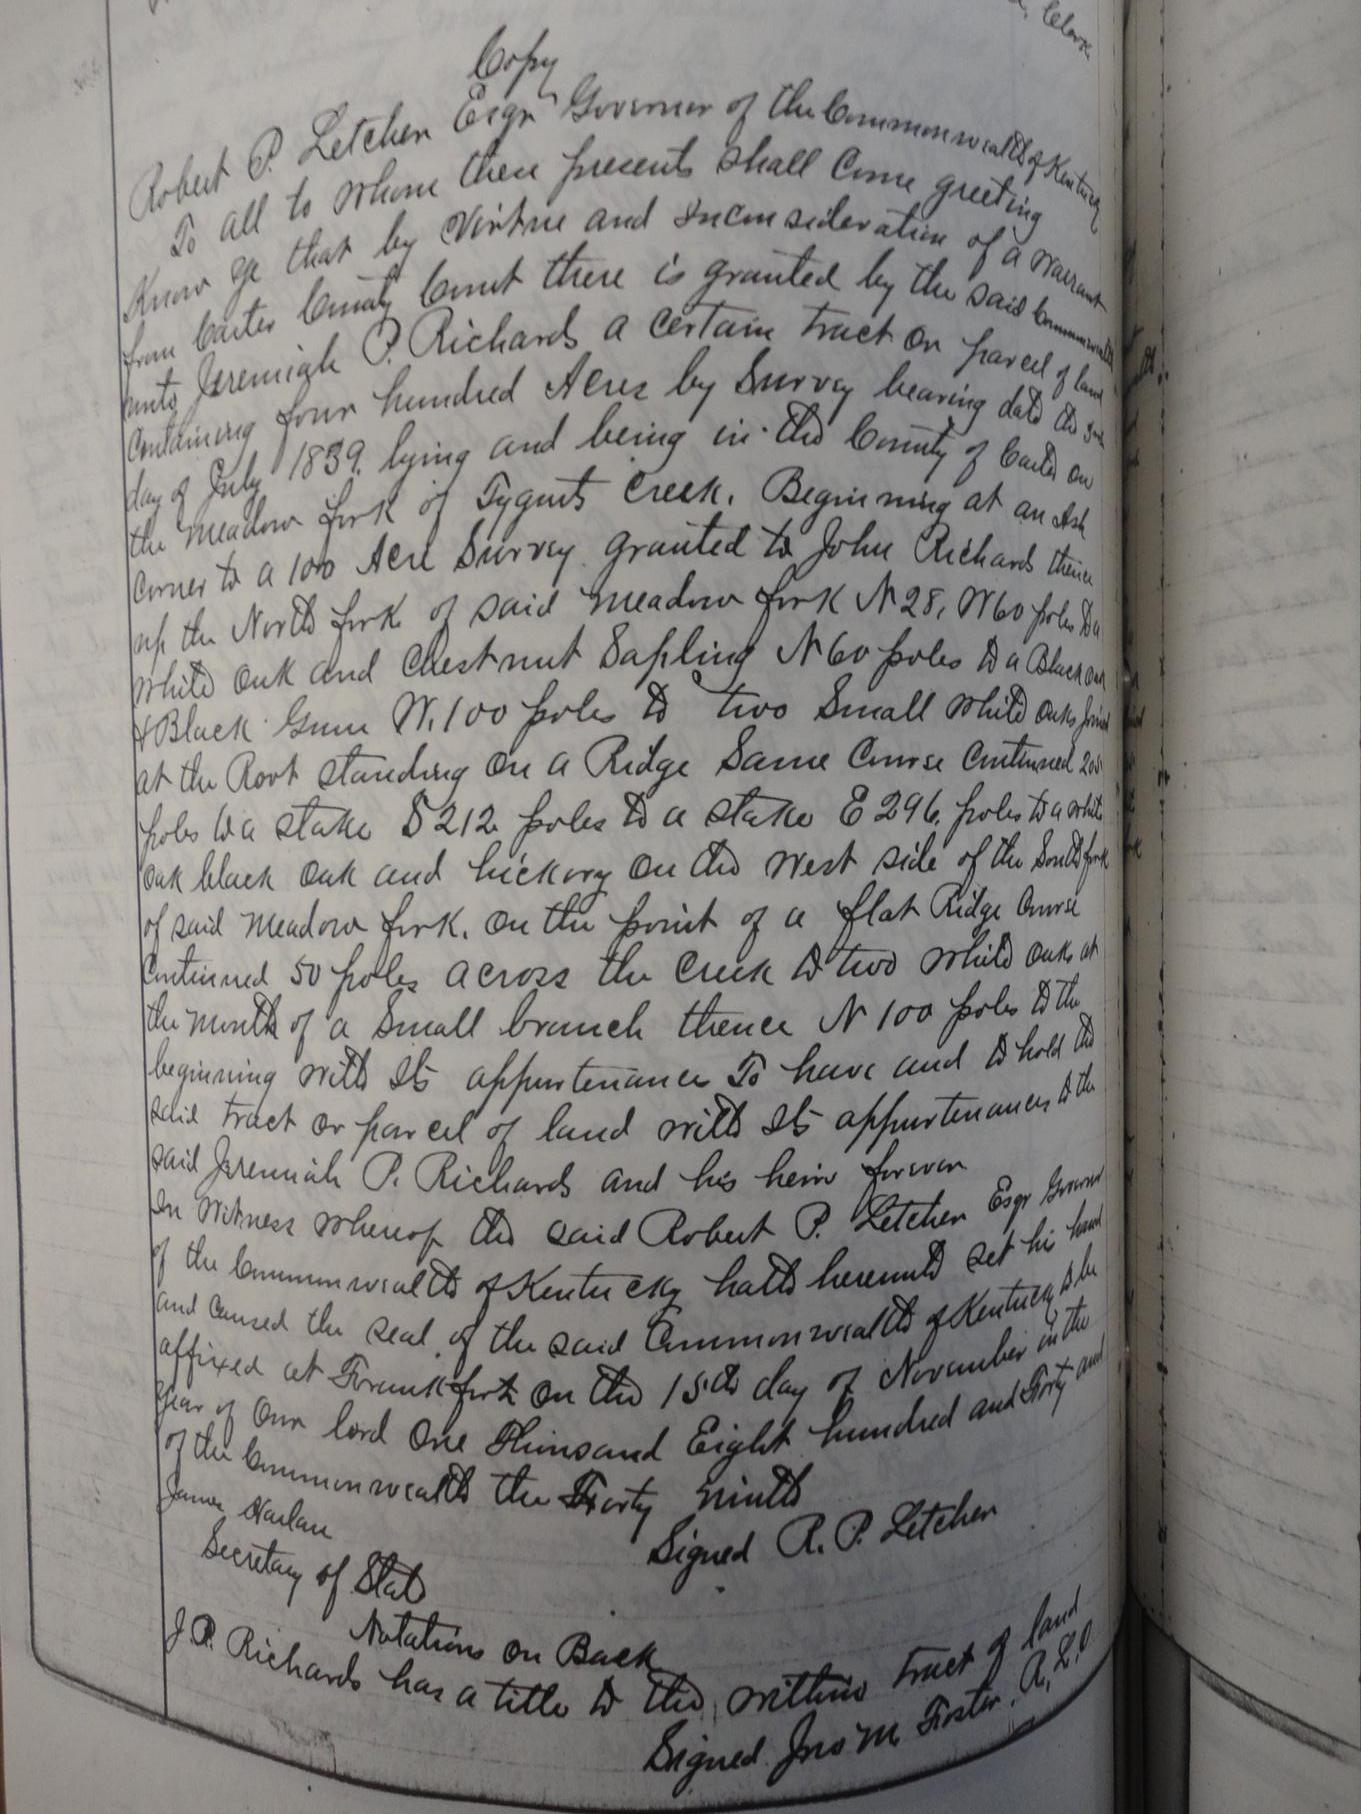 Clerk
Copy
Robert P. Letcher Esqr Governor of the Commonwealth of Kentucky
To all to whom these presents Shall Come greeting
Know ye that by Virtue and Inconsideration of a Warrant
from Carter County Court there is granted by the said Commonwealth
unto Jeremiah P. Richards a Certain tract or parcel of land
Containing four hundred Acres by Survey bearing date the
day of July 1839. lying and being in the County of Carter on
the Meadow fork of Tygarts Creek. Beginning at an Ash
Corner to a 100 Acre Survey granted to John Richards thence
up the North fork of said Meadow fork N 28, W 60 poles to a
White Oak and Chestnut Sapling N 60 poles to a Black oak
& Black Gum W. 100 poles to two Small White Oaks Joined
at the Root standing On a Ridge Same Course Continued 205
poles to a stake S 212 poles to a stake E 296. poles to a white
oak black Oak and hickory On the West side of the South fork
of said Meadow fork. On the point of a flat Ridge Course
Continued 50 poles across the Creek to two White Oaks at
the Mouth of a Small branch thence N 100 poles to the
beginning with Its appurtenances To have and to hold the
said tract or parcel of land with Its appurtenances to the
said Jeremiah P. Richards and his heirs forever
In Witness Whereof the said Robert P. Letcher Esqr Governor
of the Commonwealth of Kentucky hath hereunto set his hand
and Caused the seal of the said Commonwealth of Kentucky to be
affixed at Frankfort On the 15th day of November in the
year of Our lord One Thousand Eight hundred and Forty and
of the Commonwealth the Forty Ninth
James Harlan
Signed R. P. Letcher
Secretary of State
Notations On Back
J. P. Richards has a title to the within tract of land
Signed Jno M. Foster R. L. O